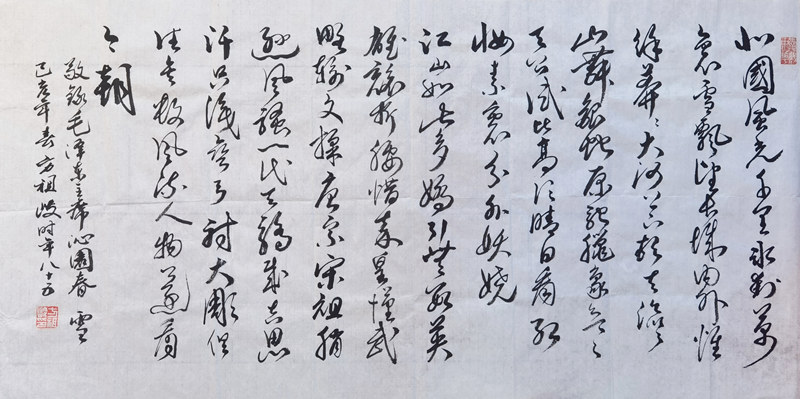 北國風光千里冰封萬
里雪飄望長城內外惟
餘莽々大河上下頓失滔々
山舞銀蛇原馳臘象欲与
天公試比高須晴日看紅
妝素裹分外妖嬈
江山如此多嬌引無數英
雄競折腰惜秦皇漢武
略輸文採唐宗宋祖稍
遜風騷一代天驕成吉思
汗只識彎弓射大雕俱
往矣數風流人物還看
今朝
敬錄毛澤東主席沁園春 雪
己亥年春方祖岐时年八十五